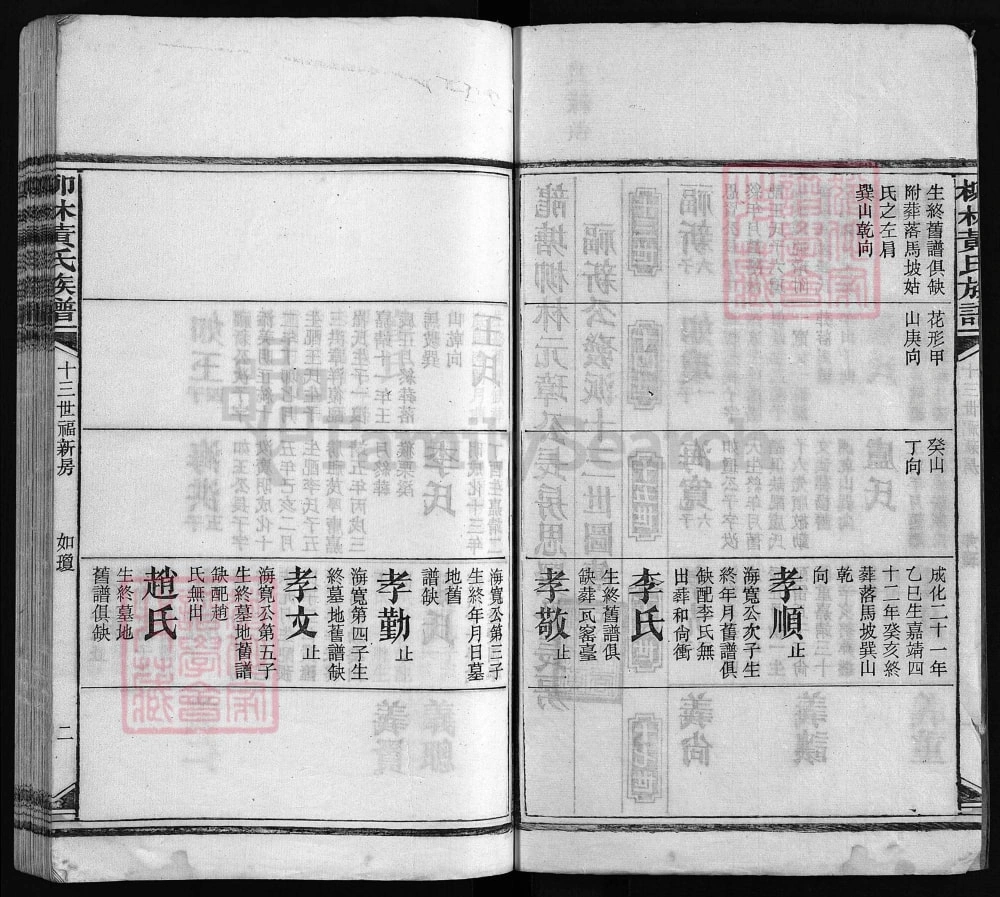 柳林黃氏族譜
生終舊譜俱缺
附葬落馬坡姑
氏之左肩
巽山乾向
花形甲
山庚向
癸山
丁向
成化二十一年
乙巳生嘉靖四
十二年癸亥終
葬落馬坡巽山
乾
向
孝順止
海寬公次子生
終年月舊譜俱
缺配李氏無
出葬和尙衝
李氏
生終舊譜俱
缺葬瓦窑臺
孝敬止
海寬公第三子
生終年月日墓
地舊
譜缺
孝勤止
海寬第四子生
終墓地舊譜缺
孝文止
海寬公第五子
生終墓地舊譜
缺配趙
氏無出
趙氏
生終墓地
舊譜俱缺
柳林黃氏族譜
十三世福新房
如瓊
二
FamilySearch